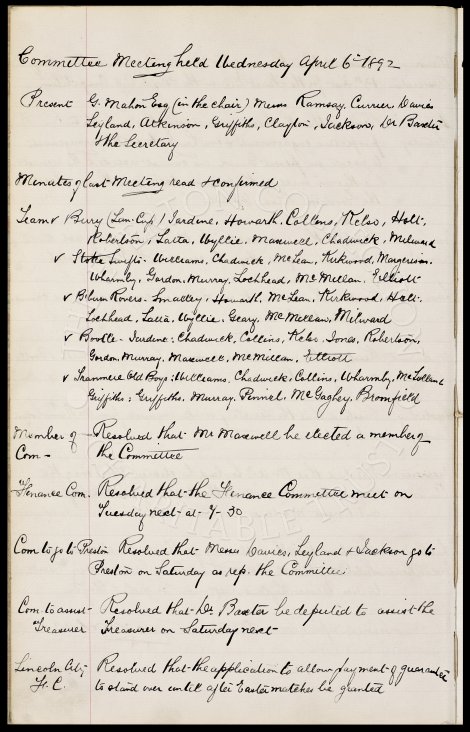 Committee Meeting held Wednesday April 6th 1892
Present G. Mahon Esq (in the chair) Messrs Ramsay, Currier, Davies
Leyland, Atkinson, Griffiths, Clayton, Jackson, Dr Baxter
& the Secretary
Minutes of last Meeting read & confirmed
Team v Bury (Lan: Cup) Jardine, Howarth, Collins, Kelso, Holt,
Robertson, Latta, Wyllie, Maxwell, Chadwick, Milward
v Stoke Swifts - Williams, Chadwick, McLean, Kirkwood, Margerison,
Wharmby, Gordon, Murray, Lochhead, McMillan, Elliott
v B'burn Rovers - Smalley, Howarth, McLean, Kirkwood, Holt,
Lochhead, Latta, Wyllie, Geary, McMillan, Milward
v Bootle - Jardine, Chadwick, Collins, Kelso, Jones, Robertson,
Gordon, Murray, Maxwell, McMillan, Elliott
v Tranmere Old Boys: Williams, Chadwick, Collins, Wharmby,
Griffiths, Griffiths, Murray, Pinnel, McGaghey, Bromfield
Member of Resolved that Mr Maxwell be elected a member of
Com- the Committee
Finance Com. Resolved that the Finance Committee meet on
Tuesday next at 7-30
Com to go to Preston Resolved that Messrs Davies, Leyland & Jackson go to
Preston on Saturday as rep. the Committee.
Com. to assist Resolved that Dr Baxter be deputed to assist the
Treasurer Treasurer on Saturday next
Lincoln City Resolved that the application to allow payment of guarantee
F.C. to stand over until after Easter matches be granted